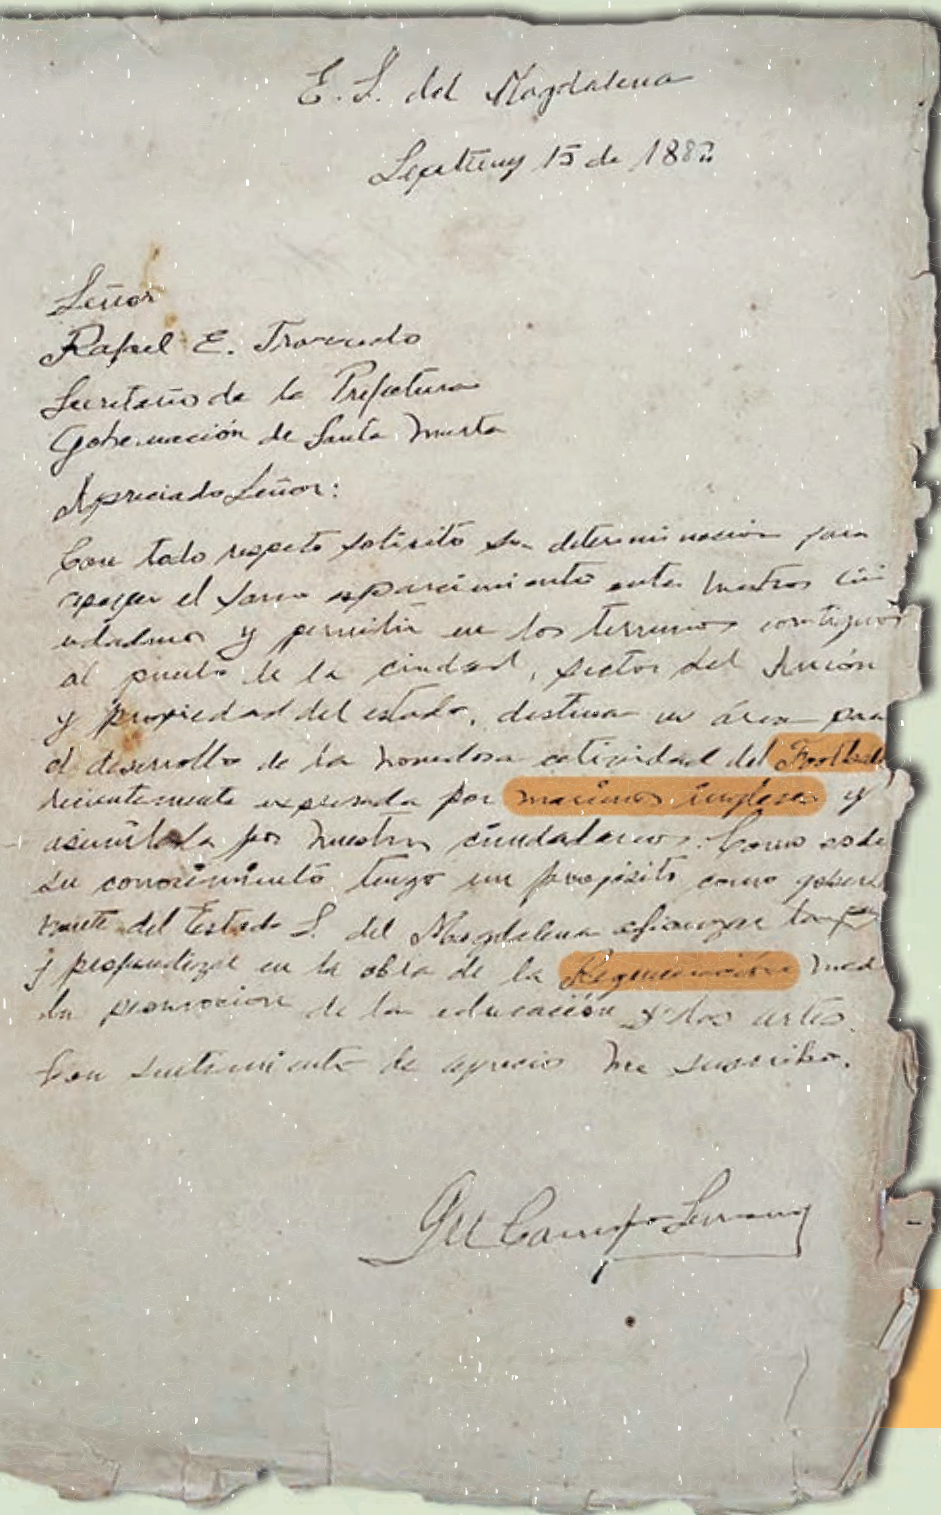 E. S. del Magdalena
15 de 188
Señor
Rafael E.
Secretario de la Prefectura
Gobernación de Santa Marta
Apreciado Señor:
Con todo respeto solicito su determinación para
el sano esparcimiento entre nuestros
y permitir en los terrenos contiguos
al puerto de la ciudad, sector del Ancón
y propiedad del estado, destinar un área para
el desarrollo de la novedosa actividad del
recientemente por marinos ingleses y
asimilada por nuestros ciudadanos. Como es de
su conocimiento tengo un propósito como
del Estado S. del Magdalena afianzar
y profundizar en la obra de la Regeneración
la promoción de la educación y las artes.
Con sentimiento de aprecio me suscribo.
Campo Serrano